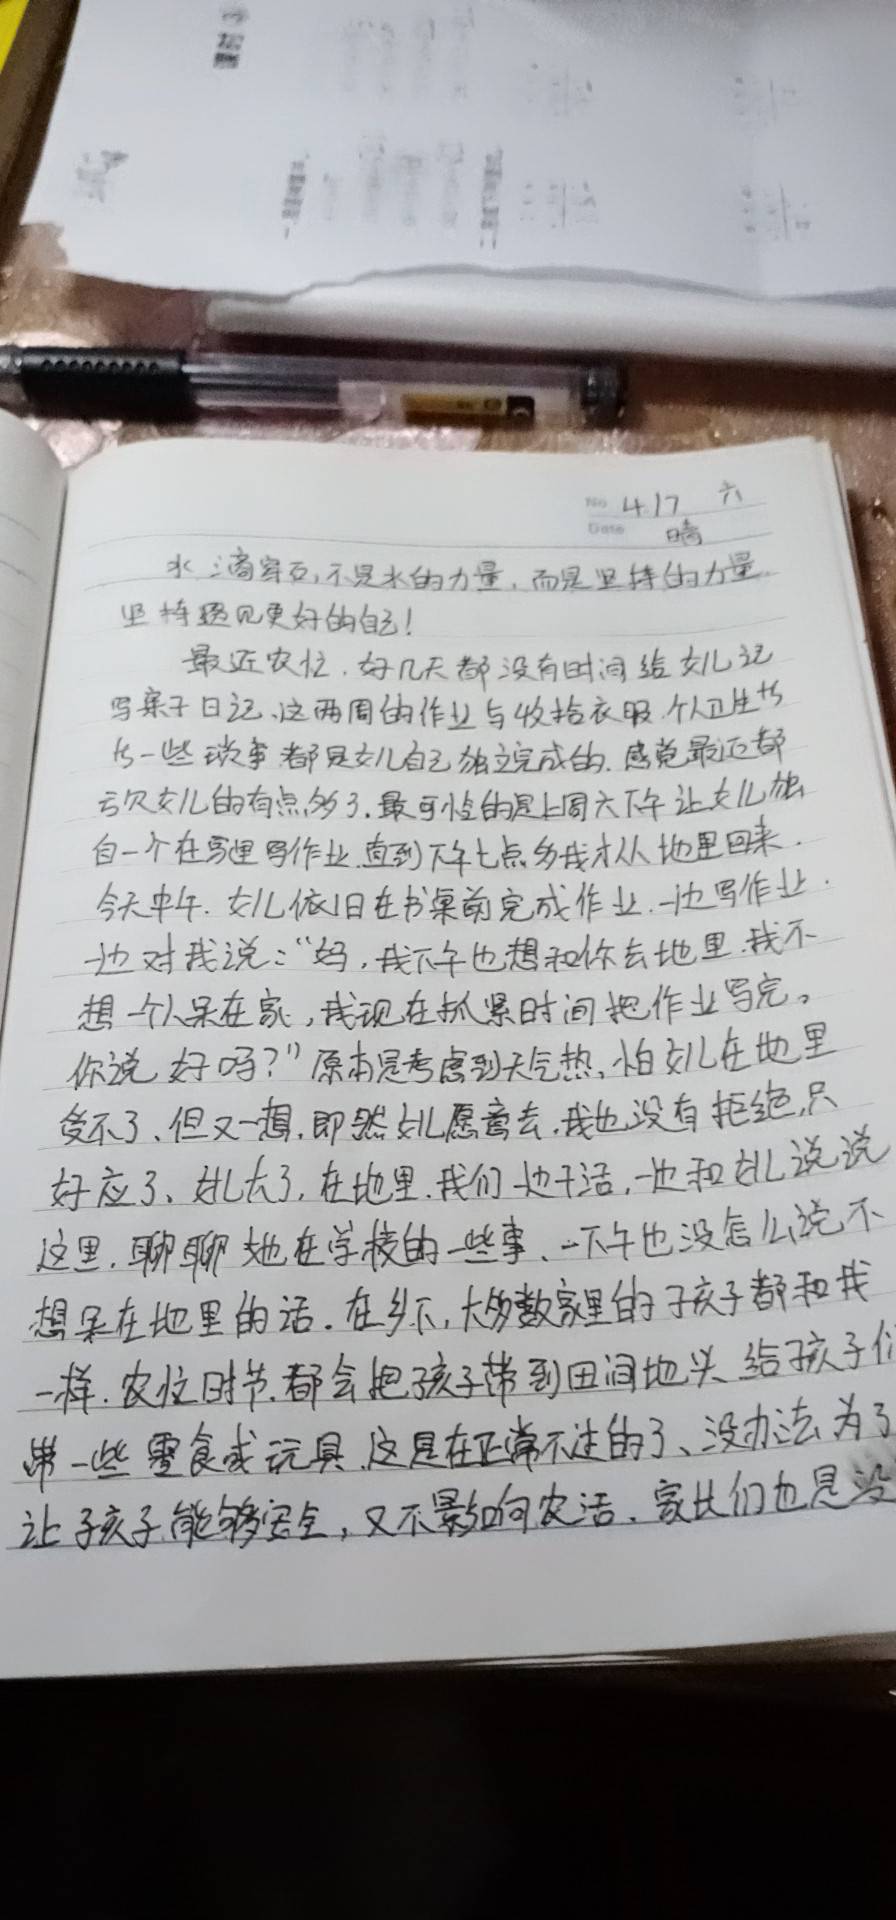 No 4.17 六
Date 晴
水滴穿石,不是水的力量,而是坚持的力量.
坚持遇见更好的自己!
最近农忙.好几天都没有时间给女儿记
写亲子日记、这两周的作业与收拾衣服.个人卫生等
等一些琐事都是女儿自己独立完成的.感觉最近都
亏欠女儿的有点多了.最可怜的是上周六下午让女儿独
自一个在家里写作业.直到下午七点多我才从地里回来.
今天中午.女儿依旧在书桌前完成作业.一边写作业.
一边对我说:“妈,我下午也想和你去地里.我不
想一个人呆在家,我现在抓紧时间把作业写完。
你说好吗?”原本是考虑到天气热、怕女儿在地里
受不了、但又一想.即然女儿愿意去.我也没有拒绝,只
好应了、女儿大了,在地里.我们一边干活,一边和女儿说说
这里.聊聊她在学校的一些事、一下午也没怎么说不
想呆在地里的话.在乡下,大多数家里的孩子都和我
一样.农忙时节.都会把孩子带到田间地头.给孩子们
带一些零食或玩具.这是在正常不过的了、没办法为了
让孩子能够安全,又不影响农活.家长们也是没